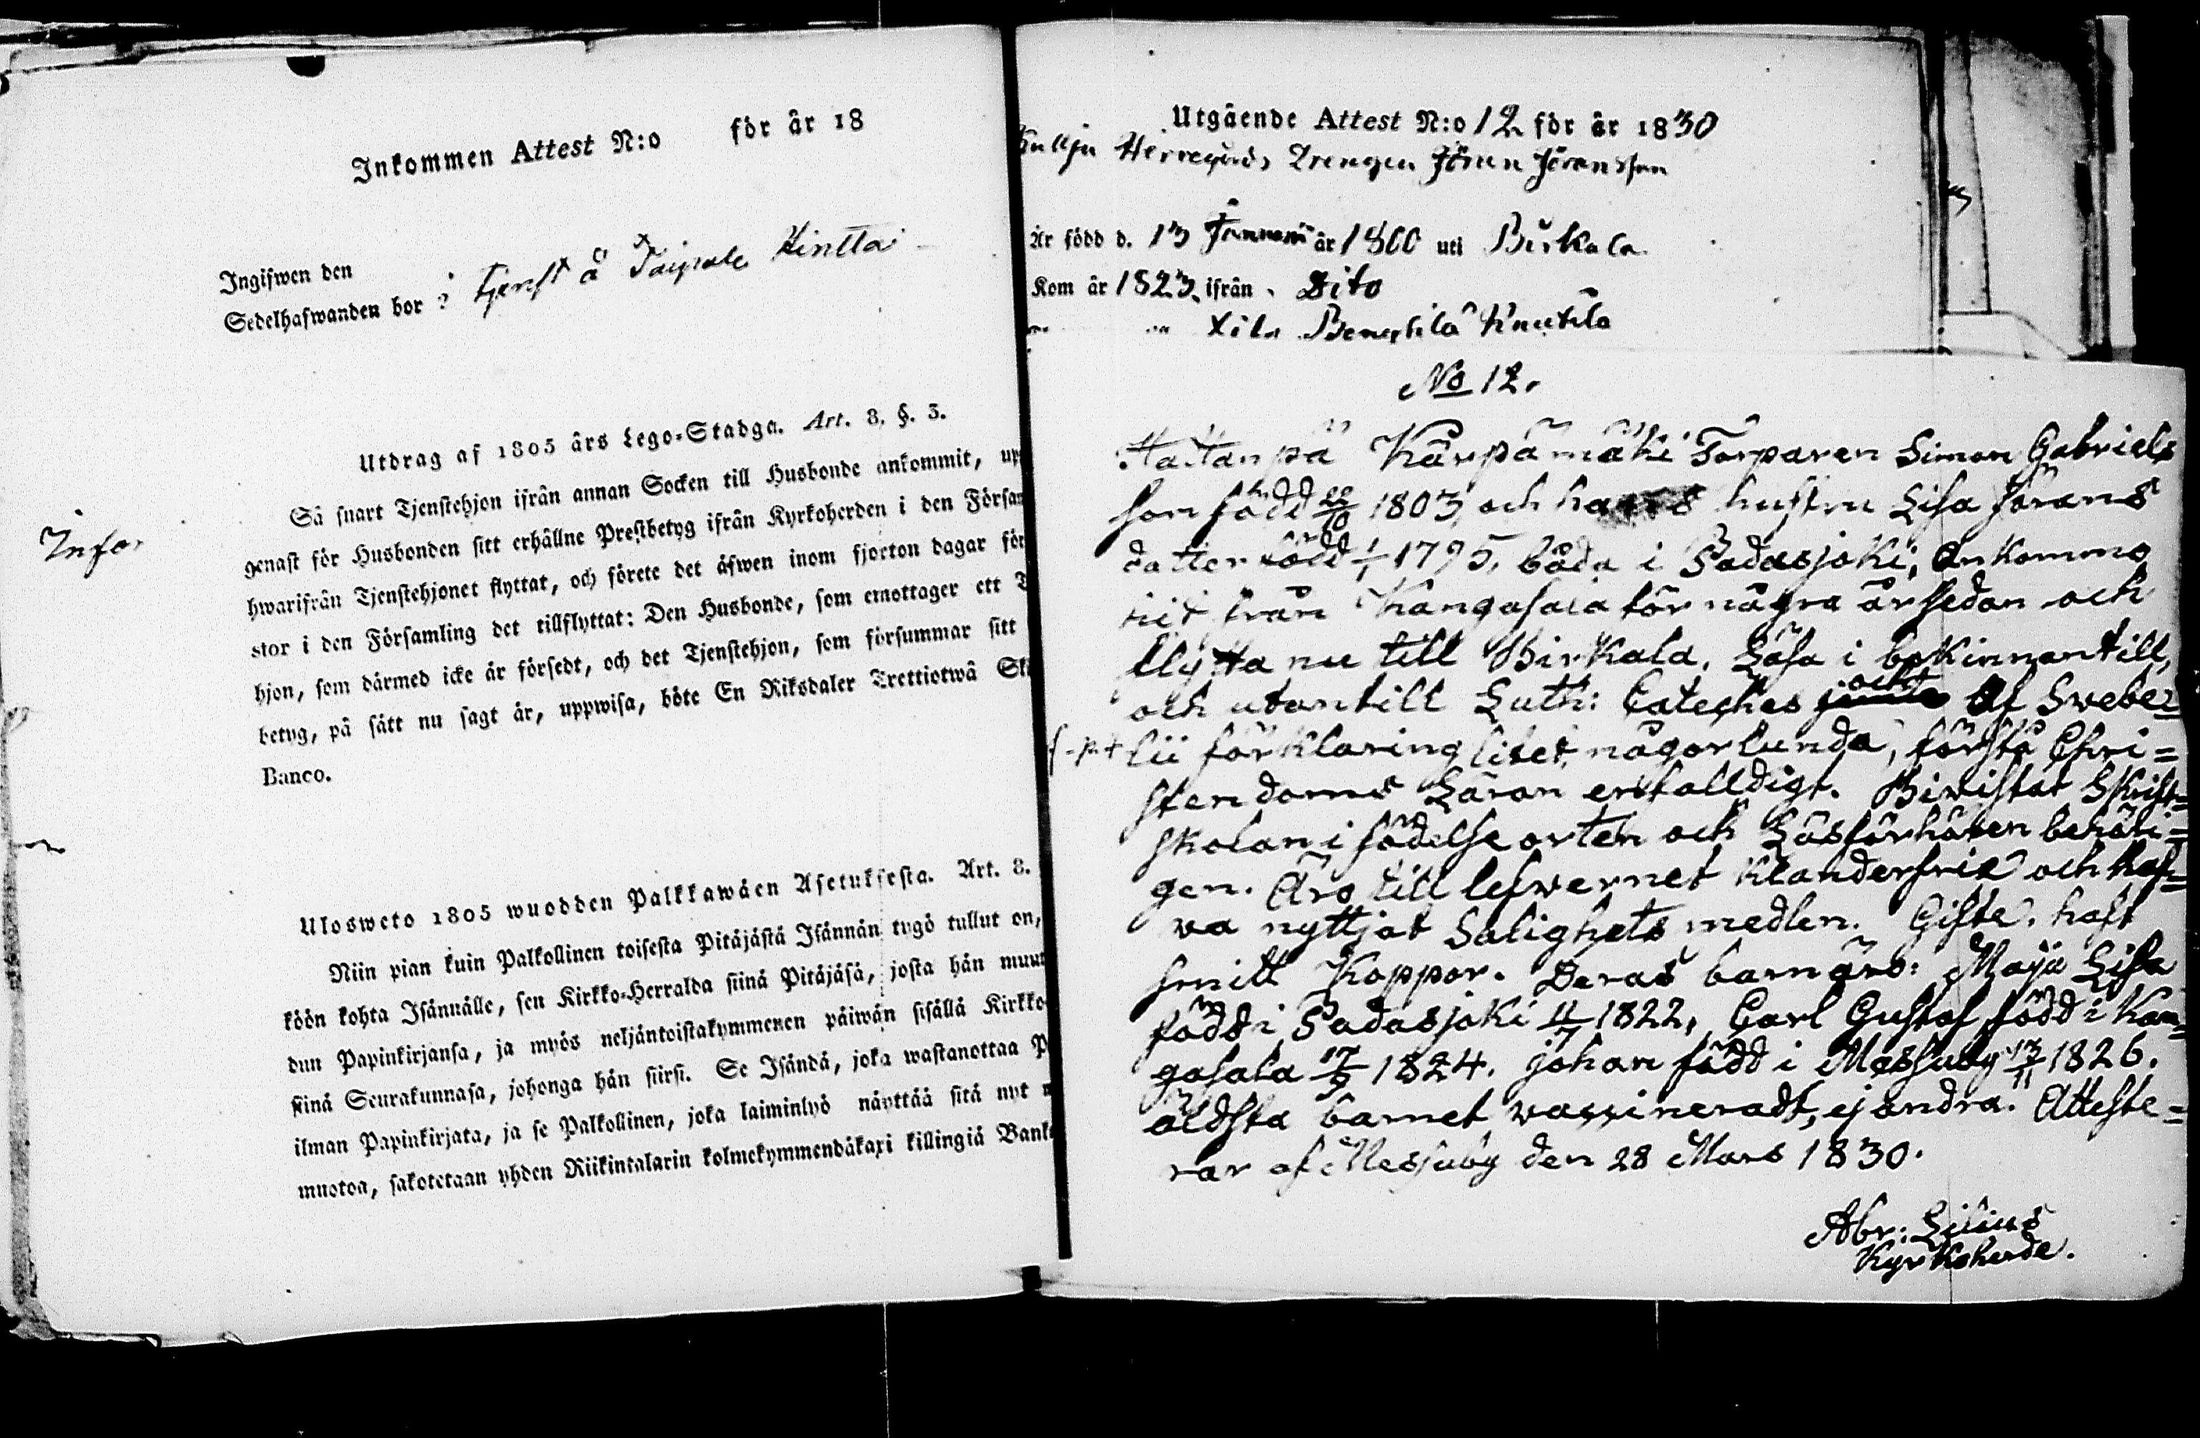 Inkommen Attest N:o för år 18
Ingifwen den
Sedelhafwanden bor i tjenst å Taipale Hintta
Utdrag af 1805 års Lego-Stadga. Art. 8. §. 3.
Så snart Tjenstehjon ifrån annan Socken till Husbonde ankommit, up
genast för Husbonden sitt erhållne Prestbetyg ifrån Kyrkoherden i den Försam
hwarifrån Tjenstehjonet flyttat, och förete det äfwen inom fjorton dagar för
stor i den Församling det tillflyttat: Den Husbonde, som emottager ett T
hjon, som därmed icke är försedt, och det Tjenstehjon, som försummar sitt
betyg, på sätt nu sagt är, uppwisa, böte En Riksdaler Trettiotwå Ski
Banco.
Infor
Ulosweto 1805 wuodden Palkkawäen Asetuksesta. Art. 8.
Niin pian kuin Palkollinen toisesta Pitäjästä Isännän tygö tullut on,
köön kohta Isännälle, sen Kirkko-Herralda siinä Pitäjäsä, josta hän muut
dun Papinkirjansa, ja myös neljäntoistakymmenen päiwän sisällä Kirkko
siinä Seurakunnasa, johonga hän siirsi. Se Isändä, joka wastanottaa P
ilman Papinkirjata, ja se Palkollinen, joka laiminlyö näyttää sitä nyt m
muotoa, sakotetaan yhden Riikintalarin kolmekymmendäkaxi killingiä Bank
Utgående Attest N:o 12 för år 1830
Herregårds Drengen Jöran Jöransson
Är född d. 13 Januarii år 1800 uti Birkala
Kom år 1823 ifrån Dito
till Knutila
No 12.
Hattanpä Kärpämäki Torparen Simon Gabriels
son född 20/10 1803, och hans hustru Lisa Jörans
datter född 1/1 1795, båda i Padasjoki, ankomne
hit från Kangasala för några år sedan och
flytta nu till Birkala. Läsa i bok innantill,
och utantill Luth: Cateches och af Swebe=
lii förklaring litet någorlunda, förstå Chri=
stendoms Läran enfalldigt. Biwistat Skrift=
skolan i födelse orten och Läsförhören behöri=
gen. Äro till lefwernet klanderfrie och haf=
wa nyttjat Salighets medlen. Gifte. haft
smitt Koppor. Deras barn äro: Maja Lisa
född i Padasjoki 11/7 1822, Carl Gustaf född i Kan=
gasala 17/5 1824. Johan född i Messuby 13/11 1826.
äldsta barnet waccineradt, ej andra. Atteste=
rar af Messuby den 28 Mars 1830.
Abr: Lilius
Kyrkoherde.